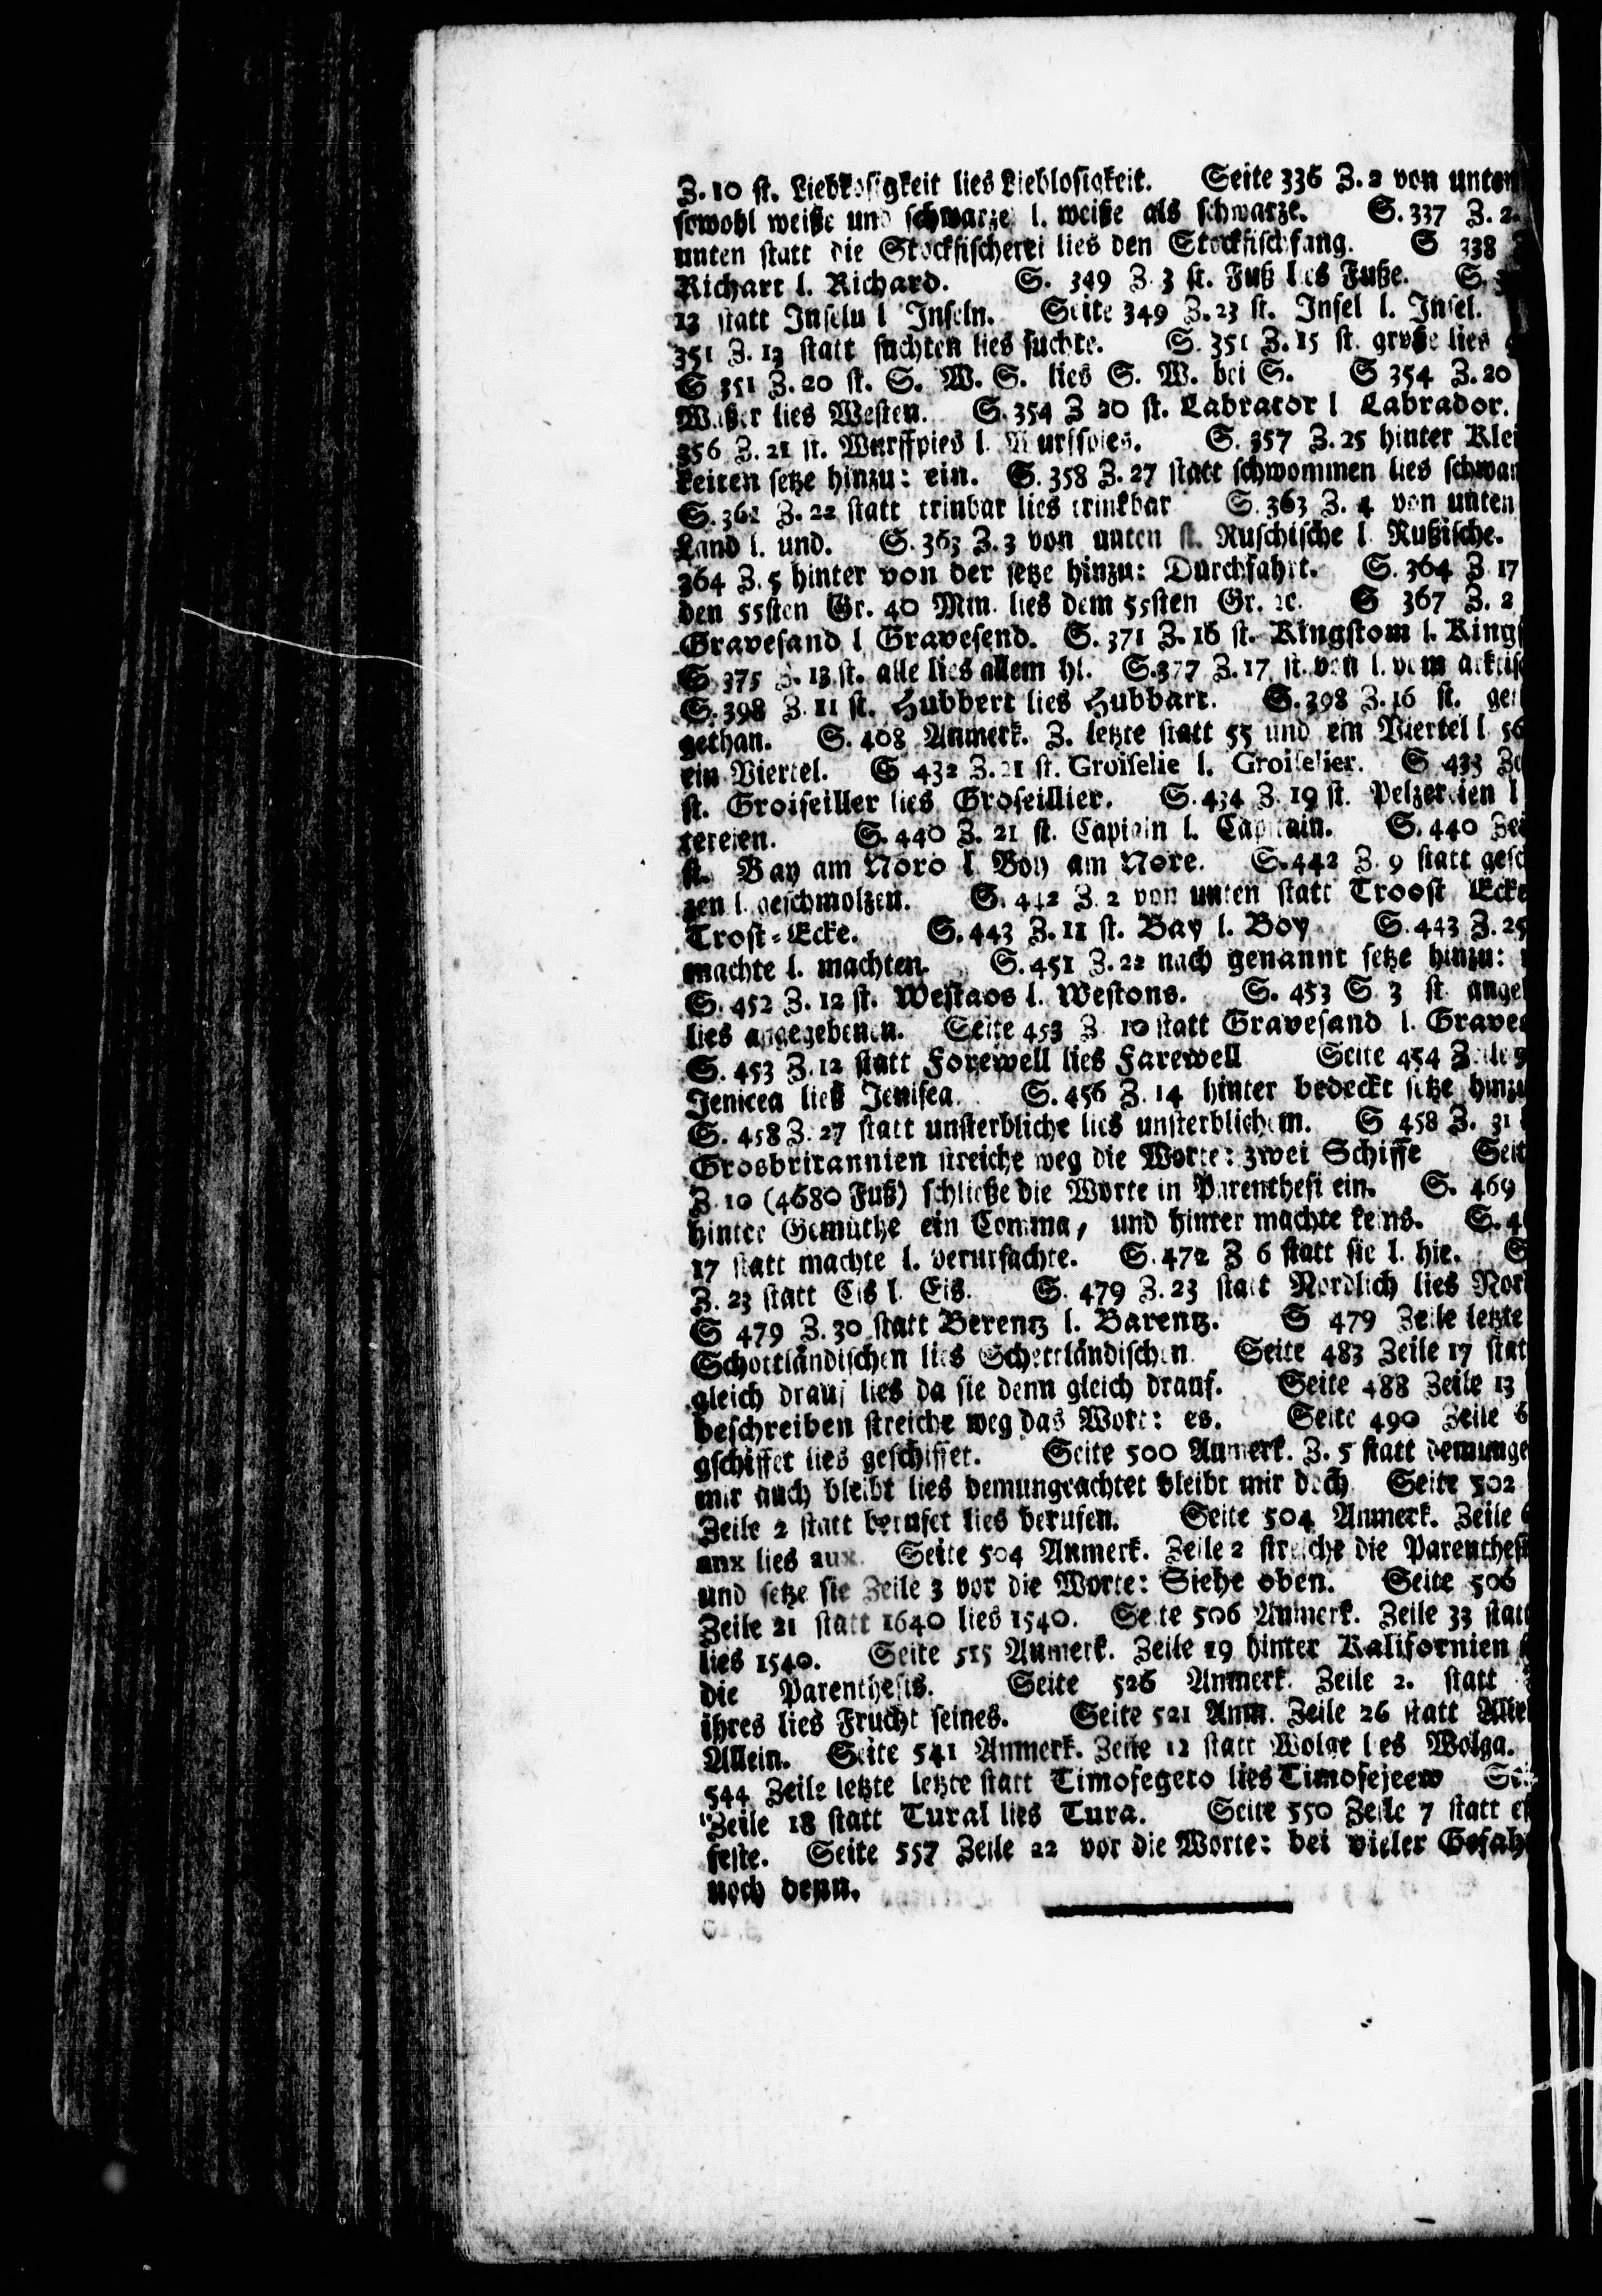 Z. 10 st. Liebkosigkeit lies Lieblosigkeit. Seite 336 Z. 2 von unten
sowohl weiße und schwarze l. weiße als schwarze. S. 337 Z. 2.
unten statt die Stockfischerei lies den Stockfischfang. S 338
Richart l. Richard. S. 349 Z. 3 st. Fuß lies Fuße. S.
13 statt Inselu l Inseln. Seite 349 Z. 23 st. Insel l. Insel.
351 Z. 13 statt suchten lies suchte. S. 351 Z. 15 st. große lies
S 351 Z. 20 st. S. W. S. lies S. W. bei S. S 354 Z. 20
Waßer lies Westen. S. 354 Z 20 st. Labrator l Labrador.
356 Z. 21 st. Wurffpies l. Wurfspies. S. 357 Z. 25 hinter Klei
keiten setze hinzu: ein. S. 358 Z. 27 statt schwommen lies schwam
S. 362 Z. 22 statt trinbar lies trinkbar S. 363 Z. 4 von unten
Land l. und. S. 363 Z. 3 von unten st. Ruschische l Rußische.
364 Z. 5 hinter von der setze hinzu: Durchfahrt. S. 364 Z 17
den 55sten Gr. 40 Min. lies dem 55sten Gr. ꝛc. S 367 Z. 2
Gravesand l Gravesend. S. 371 Z. 16 st. Kingstom l. Kings
S 375 Z. 13 st. alle lies allem hl. S. 377 Z. 17 st. von l. vom
S. 398 Z. 11 st. Hubbert lies Hubbart. S. 398 Z. 16 st. get
gethan. S. 408 Anmerk. Z. letzte statt 55 und ein Viertel l 56
ein Viertel. S 432 Z. 21 st. Groiselie l. Groiselier. S 433 Ze
st. Groiseiller lies Groseillier. S. 434 Z. 19 st. Pelzereien l
zereien. S. 440 Z. 21 st. Capiain l. Capitain. S. 440 Zei
st. Bay am Noro l Boy am Nore. S. 442 Z. 9 statt gesc
zen l. geschmolzen. S. 442 Z. 2 von unten statt Troost Ecke
Trost-Ecke. S. 443 Z. 11 st. Bay l. Boy S. 443 Z. 25
machte l. machten. S. 451 Z. 22 nach genannt setze hinzu:
S. 452 Z. 12 st. Westaos l. Westons. S. 453 S 3 st ange
lies angegebenen. Seite 453 Z. 10 statt Gravesand l. Graves
S. 453 Z. 12 statt Forewell lies Farewell Seite 454 Zeile 9
Jenicea lies Jenisea. S. 456 Z. 14 hinter bedeckt setze hinzu
S. 458 Z. 27 statt unsterbliche lies unsterblichem. S 458 Z. 31
Grosbritannien streiche weg die Worte: zwei Schiffe Seit
Z. 10 (4680 Fuß) schließe die Worte in Parenthesi ein. S. 469
hinter Gemüthe ein Comma, und hinter machte keins. S. 4
17 statt machte l. verursachte. S. 472 Z 6 statt sie l. hie. S
Z. 23 statt Cis l. Eis. S. 479 Z. 23 statt Nordlich lies Nor
S 479 Z. 30 statt Berentz l. Barentz. S 479 Zeile letzte
Schottländischen lies Schettländischen. Seite 483 Zeile 17 stat
gleich drauf lies da sie denn gleich drauf. Seite 488 Zeile 13
beschreiben streiche weg das Wort: es. Seite 490 Zeile 6
gschiffet lies geschiffet. Seite 500 Anmerk. Z. 5 statt demunge
mir auch bleibt lies demungeachtet bleibt mir doch Seite 502
Zeile 2 statt berufet lies berufen. Seite 504 Anmerk. Zeile
anx lies aux. Seite 504 Anmerk. Zeile 2 streiche die Parenthesi
und setze sie Zeile 3 vor die Worte: Siehe oben. Seite 506
Zeile 21 statt 1640 lies 1540. Seite 506 Anmerk. Zeile 33 statt
lies 1540. Seite 515 Anmerk. Zeile 19 hinter Kalifornien
die Parenthesis. Seite 526 Anmerk. Zeile 2. statt
ihres lies Frucht seines. Seite 521 Anm. Zeile 26 statt Alle
Allein. Seite 541 Anmerk. Zeile 12 statt Wolge lies Wolga.
544 Zeile letzte letzte statt Timofegero lies Timofejeew Sei
Zeile 18 statt Tural lies Tura. Seite 550 Zeile 7 statt es
feste. Seite 557 Zeile 22 vor die Worte: bei vieler Gefah
noch denn.